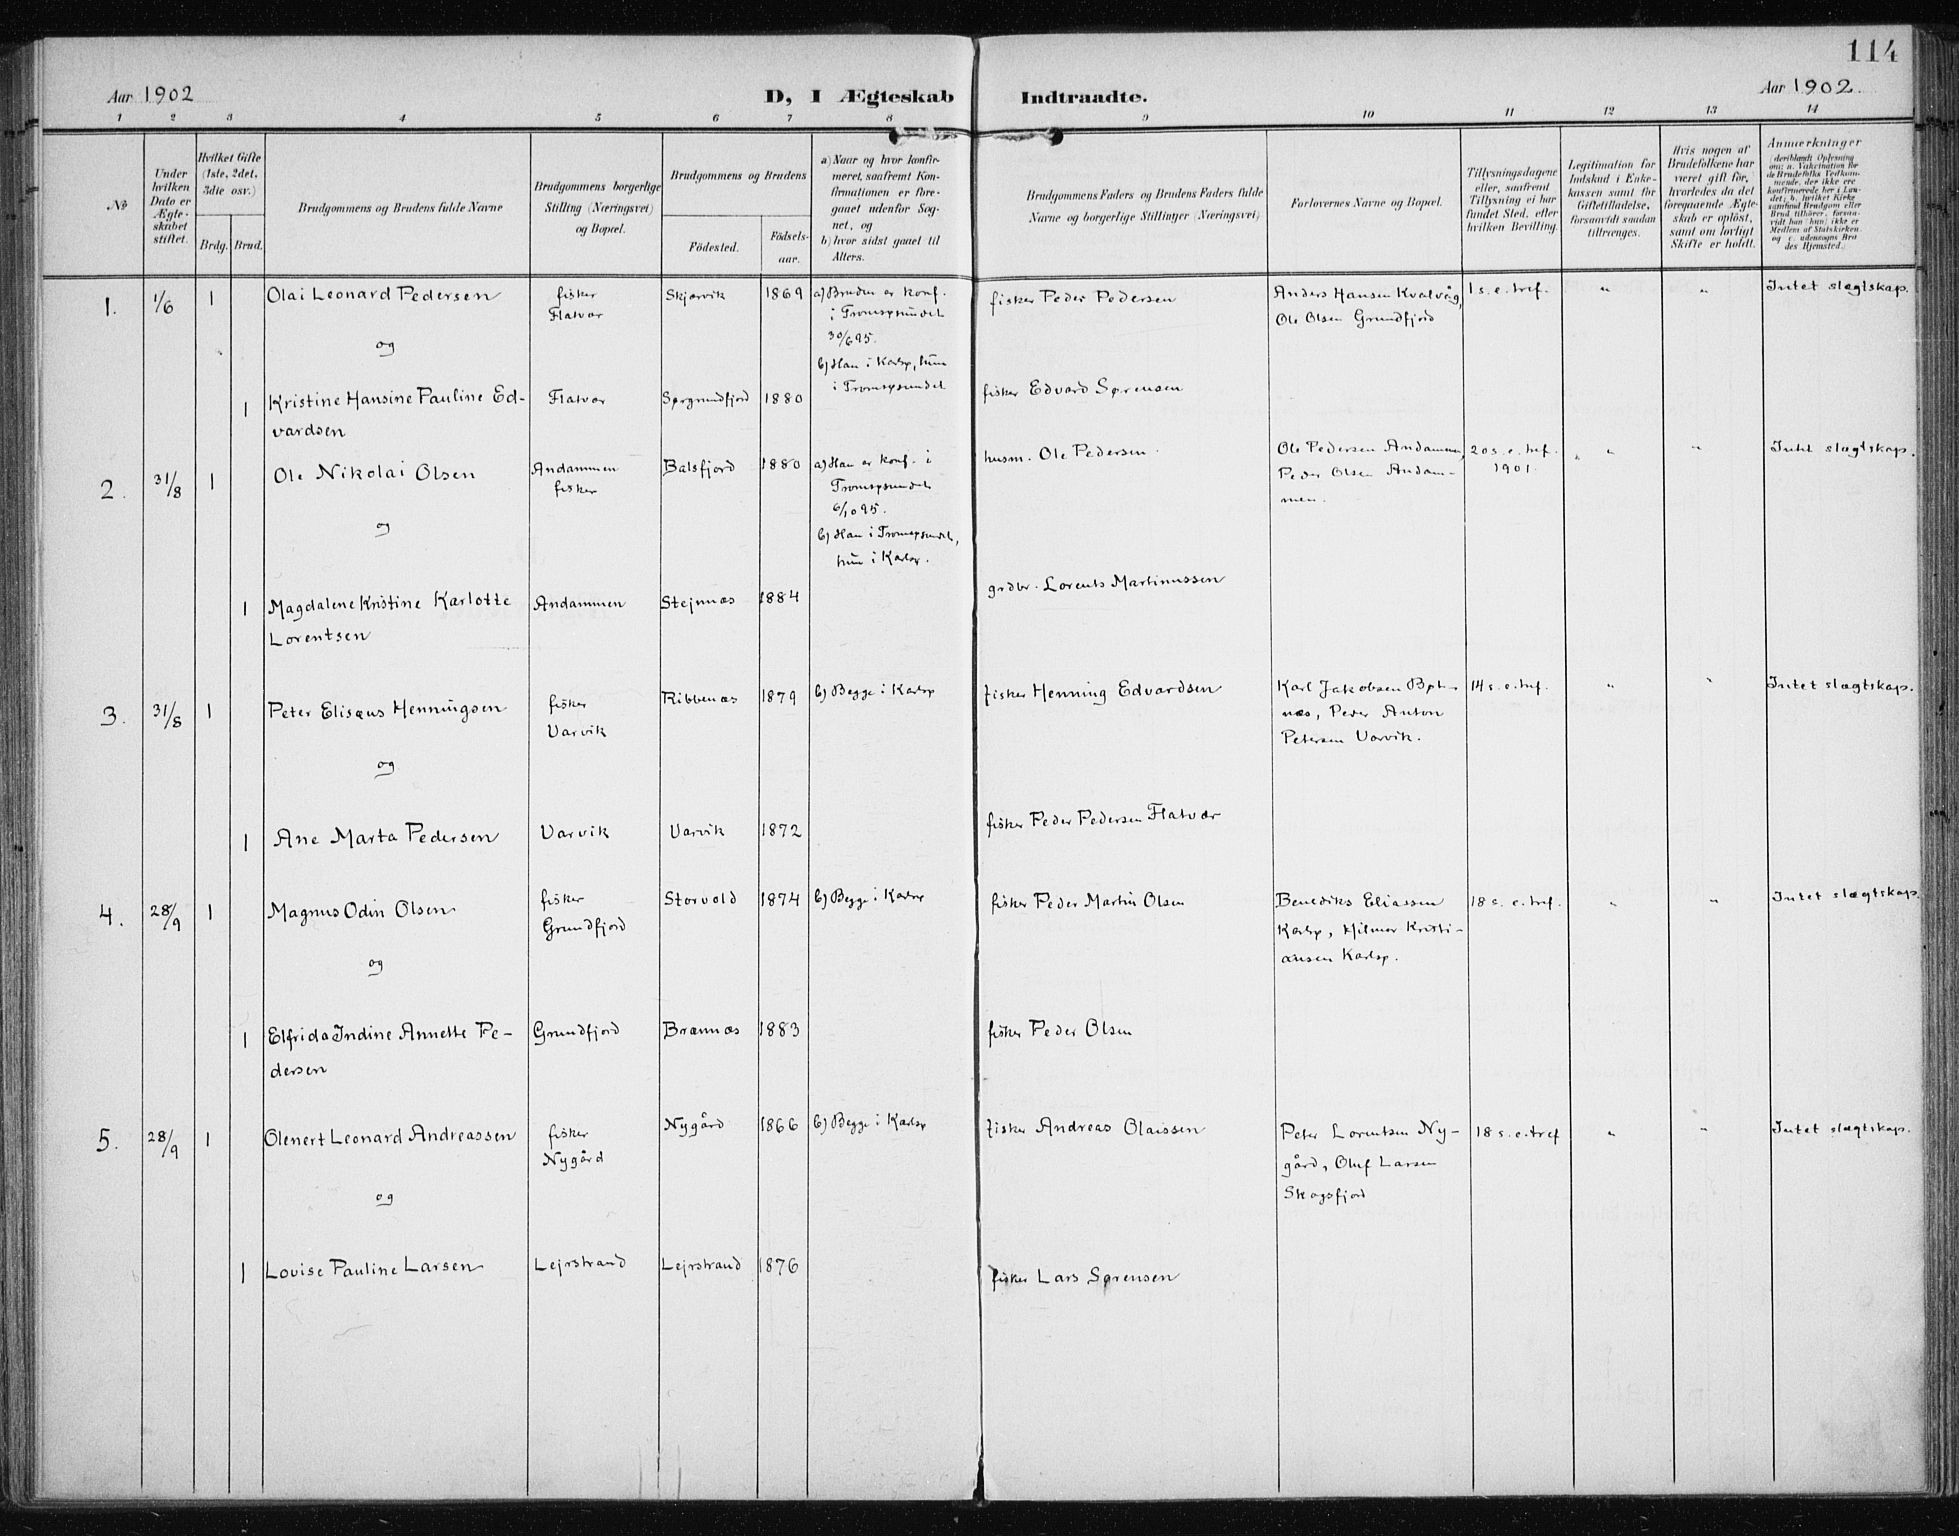 114
Aar 1902
D, I Ægteskab Indtraadte.
Aar 1902.
1 2 3 4 5 6 7 8 9 10 11 12 13 14
No
Under
hvilken
Dato er
Ægte-
skabet
stiftet.
Hvilket Gifte
(1ste, 2det,
3die osv.)
Brdg. Brud.
Brudgommens og Brudens fulde Navne
Brudgommens borgerlige
Stilling (Næringsvei)
og Bopæl.
Brudgommens og Brudens
Fødested.
Fødsels-
aar.
a) Naar og hvor konfir-
meret, saafremt Kon-
firmationen er fore-
gaaet udenfor Sog-
net, og
b) hvor sidst gaaet til
Alters.
Brudgommens Faders og Brudens Faders fulde
Navne og borgerlige Stillinger (Næringsvei)
Forlovernes Navne og Bopæl.
Tillysningsdagene
eller, saafremt
Tillysning ei har
fundet Sted, efter
hvilken Bevilling.
Legitimation for
Indskud i Enke-
kassen samt for
Giftetilladelse,
forsaavidt saadan
tiltrænges.
Hvis nogen af
Brudefolkene har
været gift før,
hvorledes da det
foregaaende Ægte-
skab er opløst,
samt om lovligt
Skifte er holdt.
Anmærkninger
(deriblandt Oplysning
om: a. Vakcination for
de Brudefolks Vedkom-
mende, der ikke ere
konfirmerede her i Lan-
det; b. hvilket Kirke-
samfund Brudgom eller
Brud tilhører, forsaa-
vidt han (hun) ikke er
Medlem af Statskirken.
og c. udensogns Bru-
des Hjemsted.)
1. 1/6 1 Olai Leonard Pedersen
fisker
Flatvær
Skjærvik 1869
a) Bruden er konf.
i Tromsøsundet
30/6 95.
b) Han i Karlsø, hun
i Tromsøsundet
fisker Peder Pedersen
Anders Hansen Kvalvåg,
Ole Olsen Grundfjord
1 s. e. tref. " " Intet slægtskap.
og
1 Kristine Hansine Pauline Ed-
vardsen
Flatvær Sørgrundfjord 1880
fisker Edvard Sørensen
2. 31/8 1 Ole Nikolai Olsen
Andammen
fisker
Balsfjord 1880
a) Han er konf. i
Tromsøsundet
6/10 95.
b) Han i Tromsøsundet,
hun i Karlsø.
husm. Ole Pedersen.
Ole Pedersen Andammen,
Peder Olsen Andam-
men.
20 s. e. tref.
1901.
" " Intet slægtskap.
og
1 Magdalene Kristine Karlotte
Lorentsen
Andammen Stejnnæs 1884
grdbr. Lorents Martinussen
3. 31/8 1 Peter Elisæus Henningsen
fisker
Varvik
Ribbenæs 1879
b) Begge i Karlsø
fisker Henning Edvardsen
Karl Jakobsen Bøt-
næs, Peder Anton
Petersen Varvik.
14 s. e. tref. " " Intet slægtskap.
og
1 Ane Marta Pedersen
Varvik Varvik 1872
fisker Peder Pedersen Flatvær
4. 28/9 1 Magnus Odin Olsen
fisker
Grundfjord
Storvold 1874
b) Begge i Karlsø
fisker Peder Martin Olsen
Benediks Eliassen
Karlsø, Hilmar Kristi-
ansen Karlsø.
18 s. e. tref. " " Intet slægtskap.
og
1 Elfrida Indine Annette Pe-
dersen
Grundfjord Brænnæs 1883
fisker Peder Olsen
5. 28/9 1 Olenert Leonard Andreassen
fisker
Nygård
Nygård 1866
b) Begge i Karlsø
fisker Andreas Olaissen
Peter Lorentsen Ny-
gård, Oluf Larsen
Skogsfjord
18 s. e. tref " " Intet slægtskap.
og
1 Lovise Pauline Larsen
Lejrstrand Lejrstrand 1876
fisker Lars Sørensen